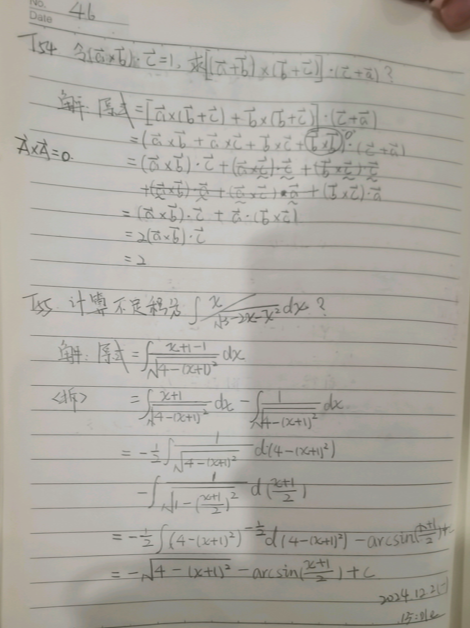 No. 46
Date
T54 令(a⃗×b⃗)·c⃗=1, 求[(a⃗+b⃗)×(b⃗+c⃗)]·(c⃗+a⃗)?
解: 原式=[a⃗×(b⃗+c⃗)+b⃗×(b⃗+c⃗)]·(c⃗+a⃗)
=(a⃗×b⃗+a⃗×c⃗+b⃗×c⃗+b⃗×b⃗)·(c⃗+a⃗)
A⃗×A⃗=0. =(a⃗×b⃗)·c⃗+(a⃗×c⃗)·c⃗+(b⃗×c⃗)·c⃗
+(a⃗×b⃗)·a⃗+(a⃗×c⃗)·a⃗+(b⃗×c⃗)·a⃗
=(a⃗×b⃗)·c⃗+a⃗·(b⃗×c⃗)
=2(a⃗×b⃗)·c⃗
=2
T55 计算不定积分∫x/√(3-2x-x²)dx?
解: 原式=∫(x+1-1)/√(4-(x+1)²)dx
<拆> =∫(x+1)/√(4-(x+1)²)dx-∫1/√(4-(x+1)²)dx
=-½∫1/√(4-(x+1)²)d(4-(x+1)²)
-∫1/√(1-((x+1)/2)²)d((x+1)/2)
=-½∫(4-(x+1)²)^(-½)d(4-(x+1)²)-arcsin((x+1)/2)+
=-√(4-(x+1)²)-arcsin((x+1)/2)+C
2024.12.2